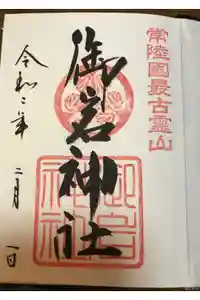 常陸國最古霊山
御岩神社
令和二年
二月
一日
御岩神社